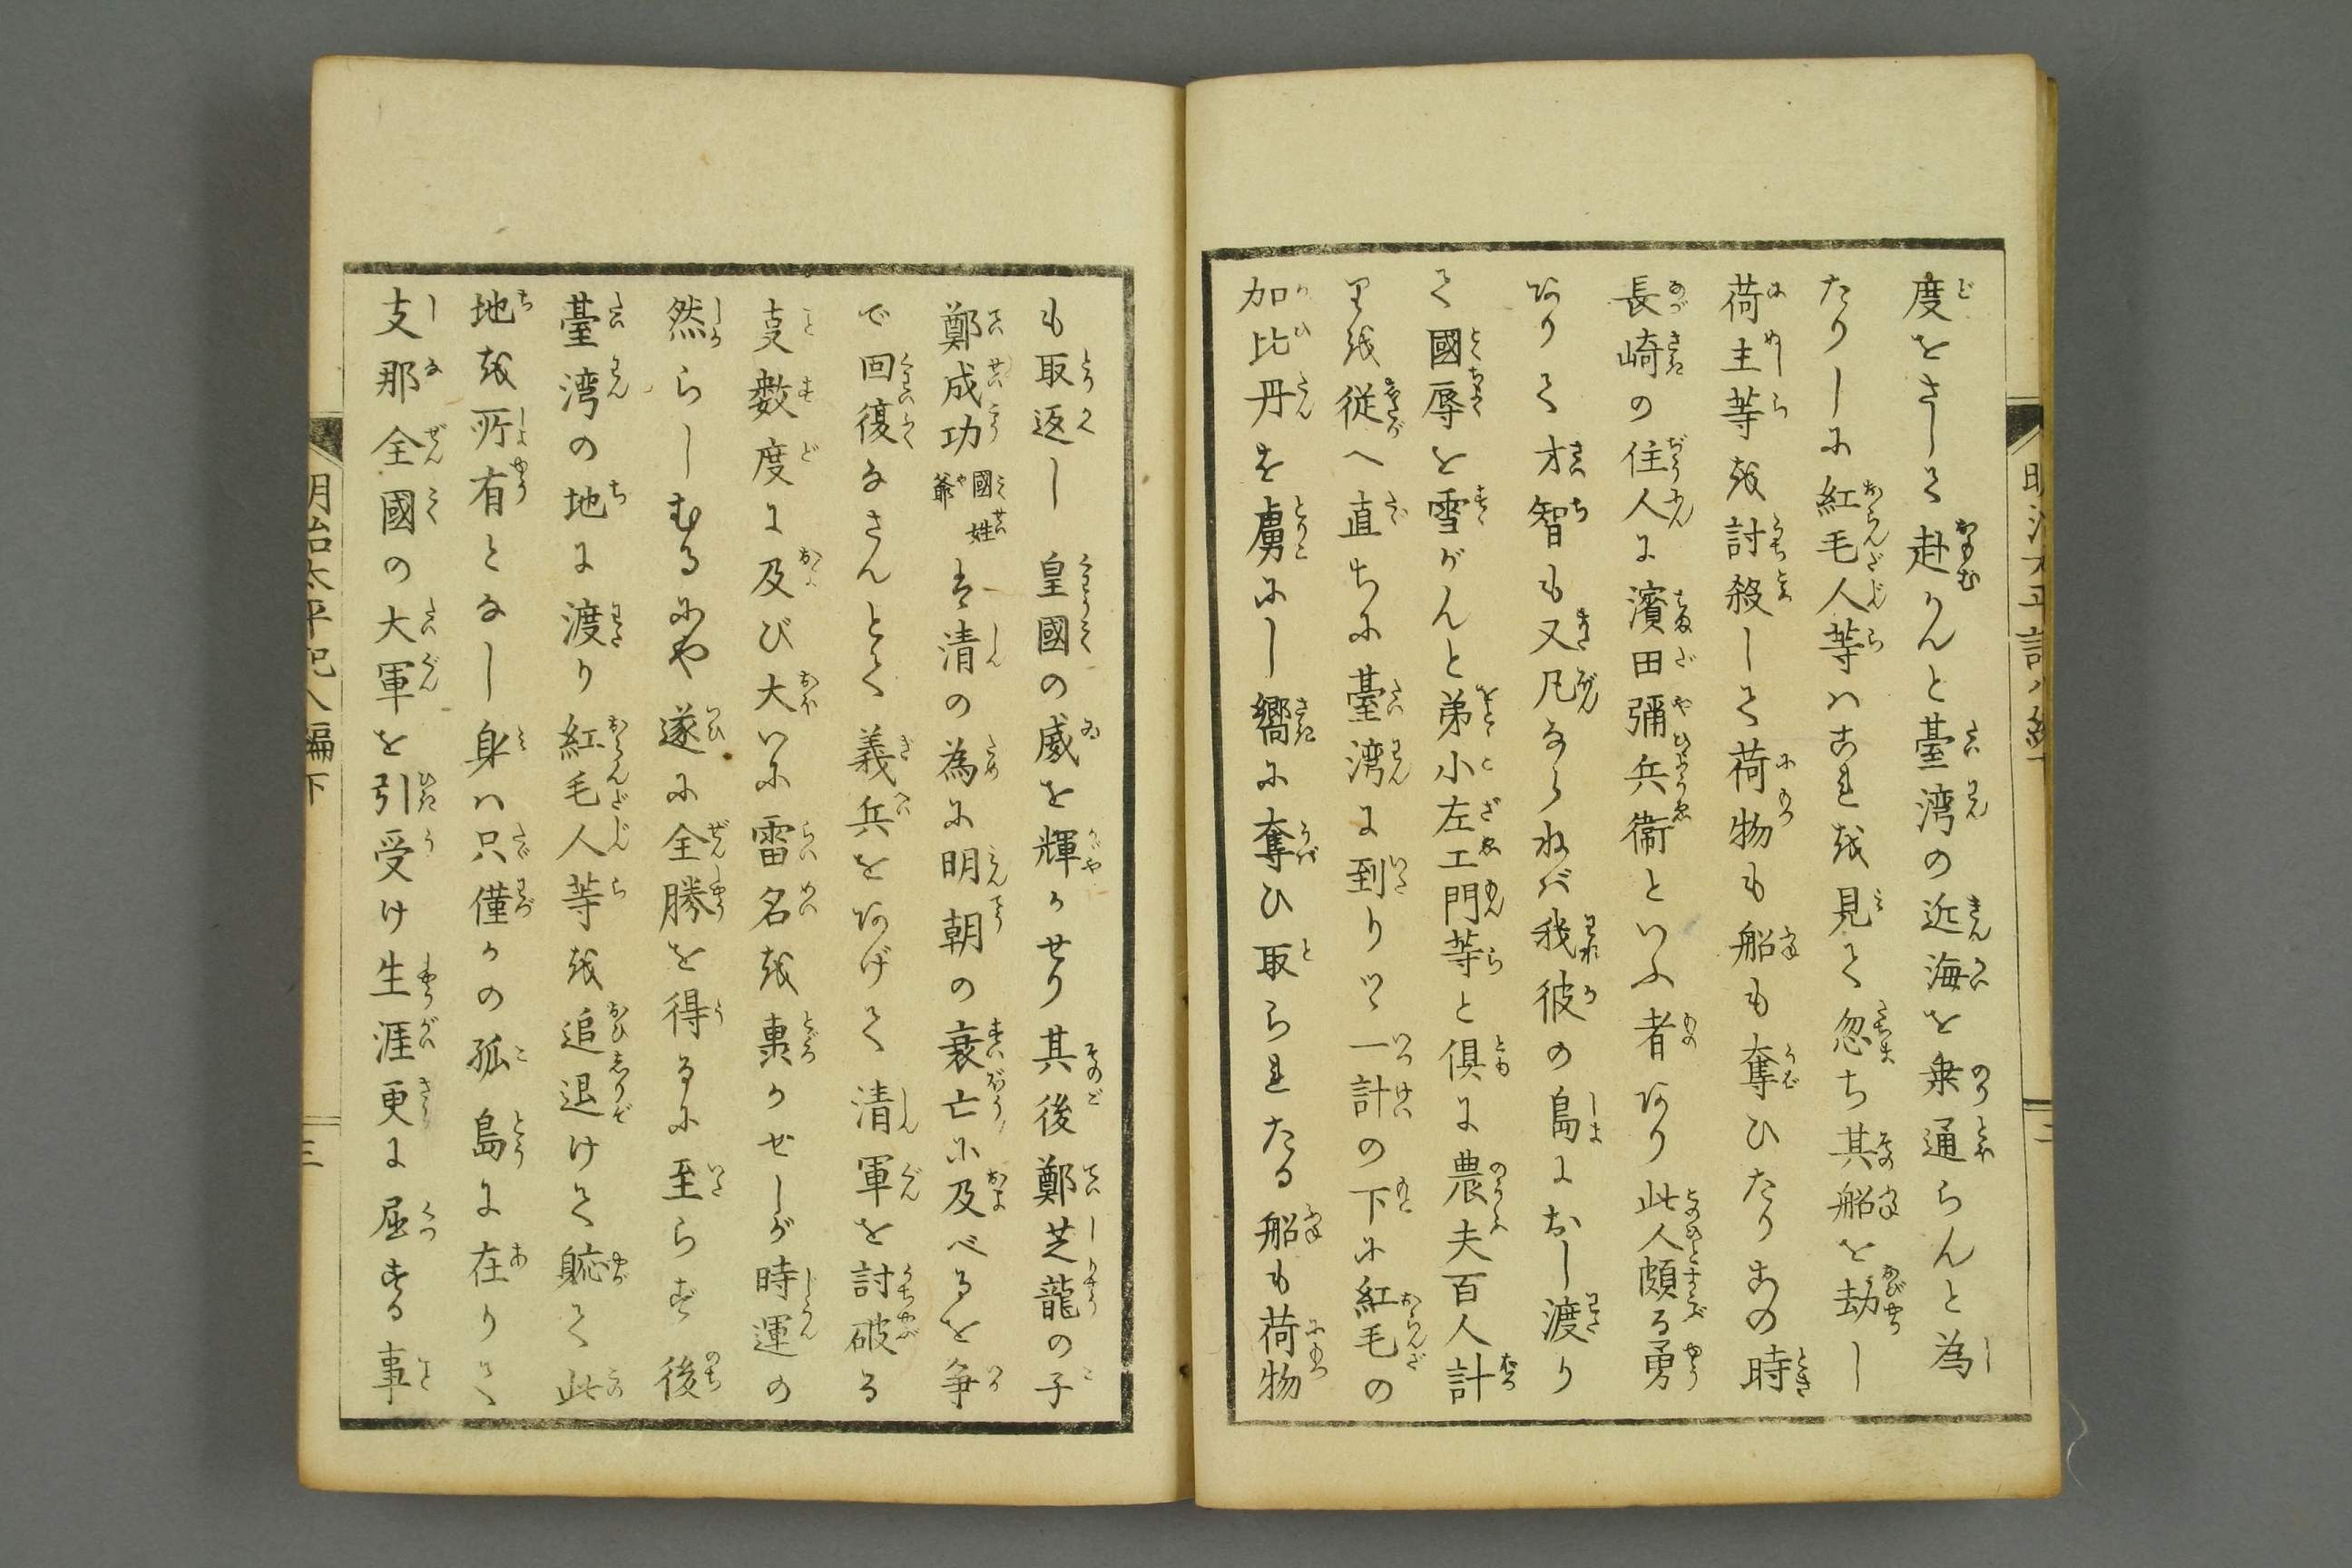 度をさして赴かんと臺湾の近海を乗通らんと為
たりしに紅毛人等ハこれを見て忽ち其船を劫し
荷主等を討殺して荷物も船も奪ひたりこの時
長崎の住人に濱田彌兵衞といふ者あり此人頗る勇
ありて才智も又凡ならねバ我彼の島におし渡り
て國辱を雪がんと弟小左エ門等と倶に農夫百人計
りを従へ直ちに臺湾に到りツヽ一計の下に紅毛の
加比丹を虜にし嚮に奪ひ取られたる船も荷物
も取返し 皇國の威を輝かせり其後鄭芝龍の子
鄭成功國姓爺は清の為に明朝の衰亡に及べるを争
で回復なさんとて義兵をあげて清軍を討破る
叓數度に及び大いに雷名を轟かせしが時運の
然らしむるにや遂に全勝を得るに至らず後
臺湾の地に渡り紅毛人等を追退けて躮て此
地を所有となし身ハ只僅かの孤島に在りて
支那全國の大軍を引受け生涯更に屈する事
明治太平記八編下
三
明治太平記八編下
二